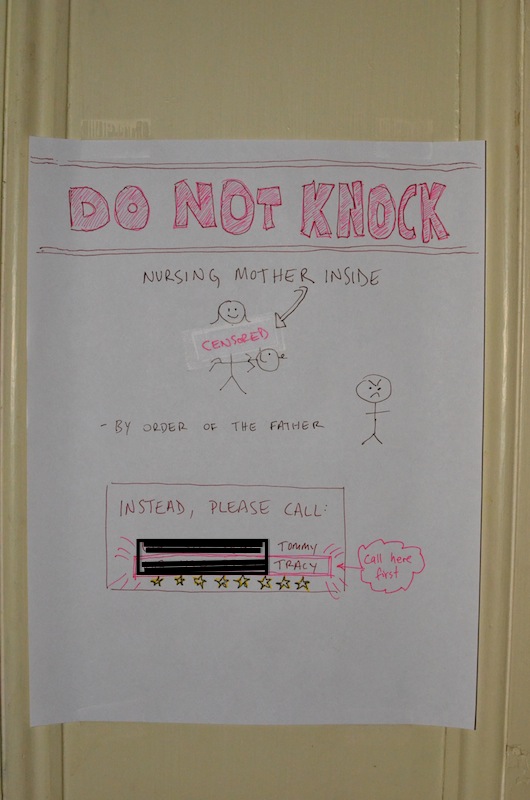 DO NOT KNOCK
NURSING MOTHER INSIDE
CENSORED
- BY ORDER OF THE FATHER
INSTEAD, PLEASE CALL:
TOMMY
TRACY
Call here
first